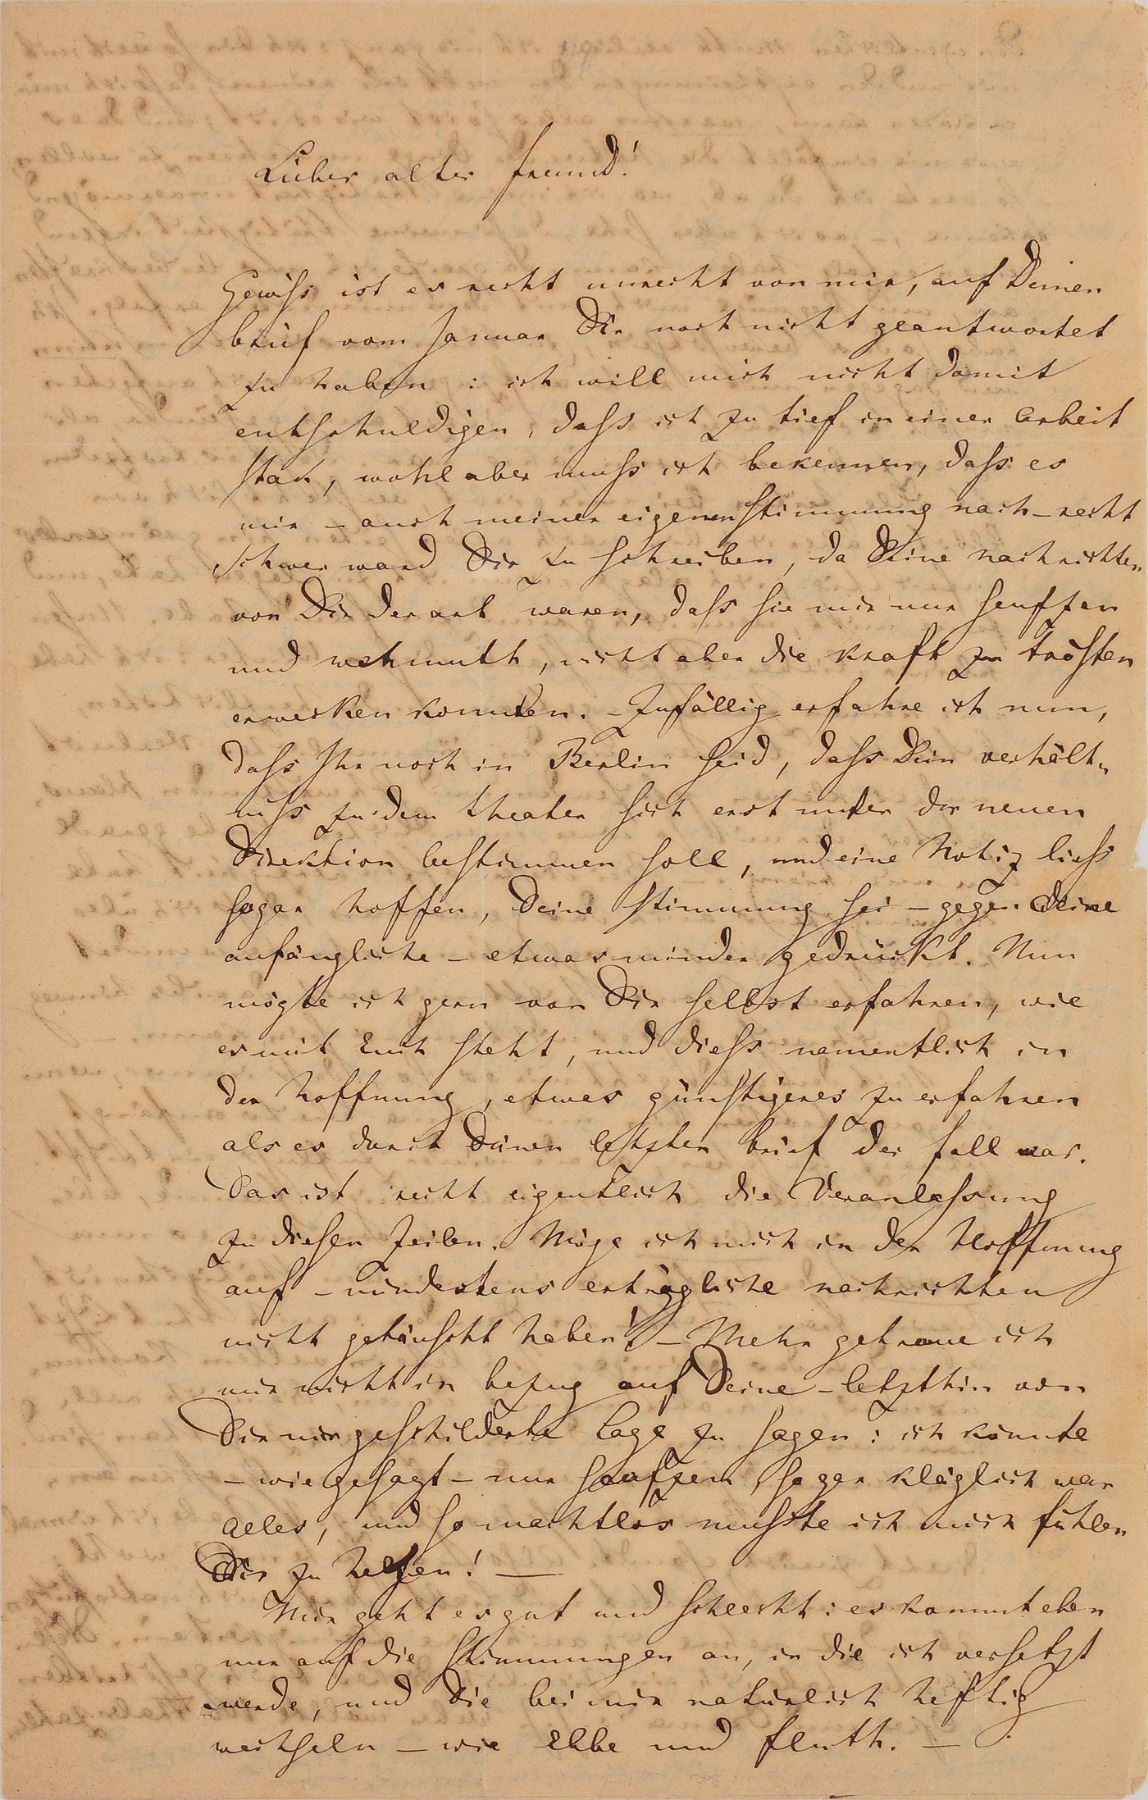 Lieber alter freund!
Gewiss ist es recht unrecht von mir, auf Deinen
brief vom Januar Dir noch nicht geantwortet
zu haben : ich will mich nicht damit
entschuldigen, dass ich zu tief in einer arbeit
stak, wohl aber muss ich bekennen, dass es
mir – auch meiner eigenen stimmung nach – recht
schwer ward Dir zu schreiben, da Deine nachrichten
von Dir derart waren, dass sie mir nur seufzen
und wehmuth, nicht aber die kraft zu trösten
erwecken konnten. – Zufällig erfahre ich nun,
dass Ihr noch in Berlin seid, dass Dein verhält-
niss zu dem theater sich erst unter der neuen
Direktion bestimmen soll, und eine Notiz liess
sogar hoffen, Deine stimmung sei – gegen Deine
anfängliche – etwas minder gedrückt. Nun
mögte ich gern von Dir selbst erfahren, wie
es mit Euch steht, und diess namentlich in
der hoffnung, etwas günstigeres zu erfahren
als es durch Deinen letzten brief der fall war.
Das ist recht eigentlich die Veranlassung
zu diesen zeilen. Möge ich mich in der Hoffnung
auf – mindestens erträgliche nachrichten
nicht getäuscht haben! – Mehr getraue ich
mir nicht in bezug auf Deine – letzthin von
Dir mir geschilderte lage zu sagen : ich könnte
– wie gesagt – nur seufzen, so gar kläglich war
alles, und so machtlos musste ich mich fühlen
Dir zu helfen! —
Mir geht es gut und schlecht : es kommt eben
nur auf die stimmungen an, in die ich versetzt
werde, und die bei mir natürlich heftig
wechseln – wie Ebbe und fluth. —